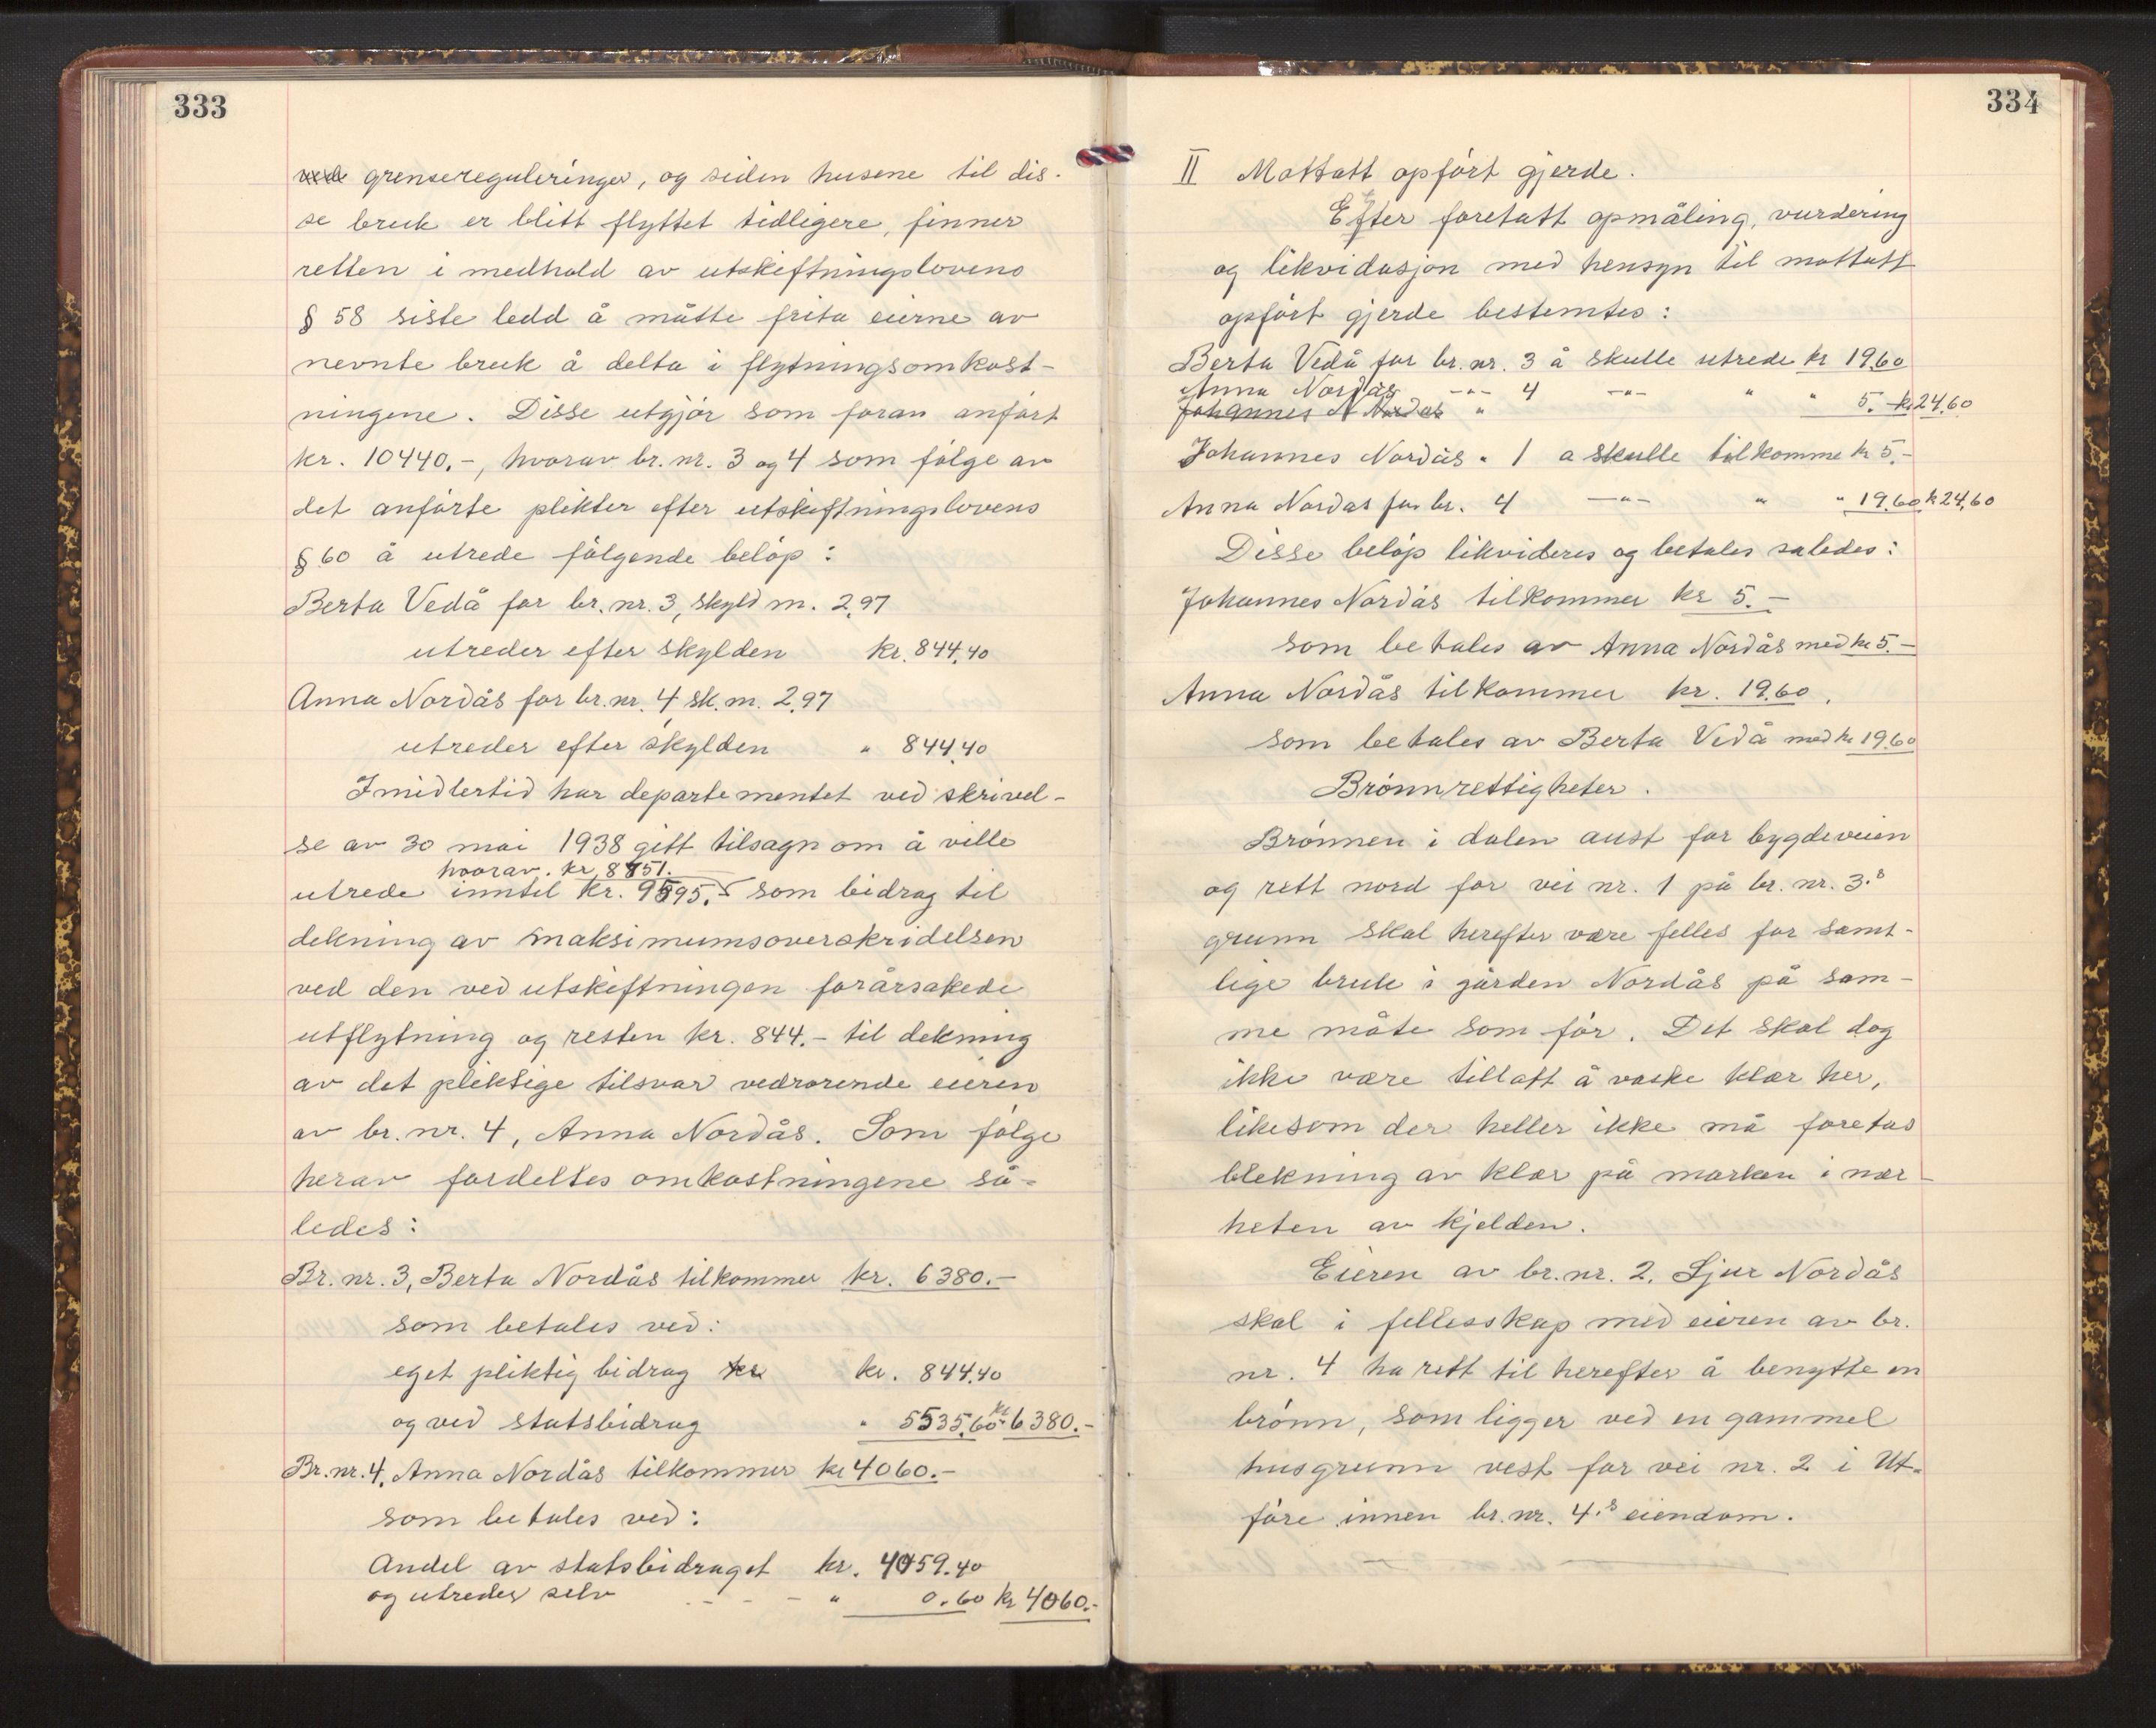 333
grensereguleringer, og siden husene til dis-
se bruk er blitt flyttet tidligere, finner
retten i medhold av utskiftningslovens
§ 58 siste ledd å måtte frita eierne av
nevnte bruk å delta i flytningsomkost-
ningene. Disse utgjør som foran anført
kr. 10440.-, hvorav br. nr. 3 og 4 som følge av
det anførte plikter efter utskiftningslovens
§ 60 å utrede følgende beløp:
Berta Vedå for br. nr. 3, skyld m. 2,97
utreder efter skylden kr. 844,40
Anna Nordås for br. nr. 4, sk. m. 2,97
utreder efter skylden " 844,40
Imidlertid har departementet ved skrivel-
se av 30 mai 1938 gitt tilsagn om å ville
hvorav kr. 8751.
utrede inntil kr. 9595.- som bidrag til
dekning av maksimumsoverskridelsen
ved den ved utskiftningen forårsakede
utflytning og resten kr. 844.- til dekning
av det pliktige tilsvar vedrørende eieren
av br. nr. 4, Anna Nordås. Som følge
herav fordeltes omkostningene så-
ledes:
Br. nr. 3, Berta Nordås tilkommer kr. 6380.-
som betales ved:
eget pliktig bidrag kr kr. 844,40
og ved statsbidrag " 5535,60 kr 6380.-
Br. nr. 4, Anna Nordås tilkommer kr 4060.-
som betales ved:
Andel av statsbidraget kr. 4059.40
og utreder selv - - - " 0.60 kr 4060.-
334
II Mottatt opført gjerde.
Efter foretatt opmåling, vurdering
og likvidasjon med hensyn til mottatt
opført gjerde bestemtes:
Berta Vedå for br. nr. 3 å skulle utrede kr 19.60
Anna Nordås -"- 4 -"- " " 5.- kr 24.60
Johannes N Nordås "
Johannes Nordås " 1 a skulle tilkomme kr 5.-
Anna Nordås for br. 4 -"- " " 19.60 kr 24,60
Disse beløp likvideres og betales saledes:
Johannes Nordås tilkommer kr 5.-
som betales av Anna Nordås med kr 5.-
Anna Nordås tilkommer kr. 19.60.
som betales av Berta Vedå med kr 19.60
Brønnrettigheter.
Brønnen i dalen aust for bygdeveien
og rett nord for vei nr. 1 på br. nr. 3.s
grunn skal herefter være felles for samt-
lige bruk i gården Nordås på sam-
me måte som før. Det skal dog
ikke være tillatt å vaske klær her,
likesom der heller ikke må foretas
blekning av klær på marken i nær-
heten av kjelden.
Eieren av br. nr. 2, Sjur Nordås
skal i fellesskap med eieren av br.
nr. 4 ha rett til herefter å benytte en
brønn, som ligger ved en gammel
husgrunn vest for vei nr. 2 i Ut-
føre innen br. nr. 4.s eiendom.